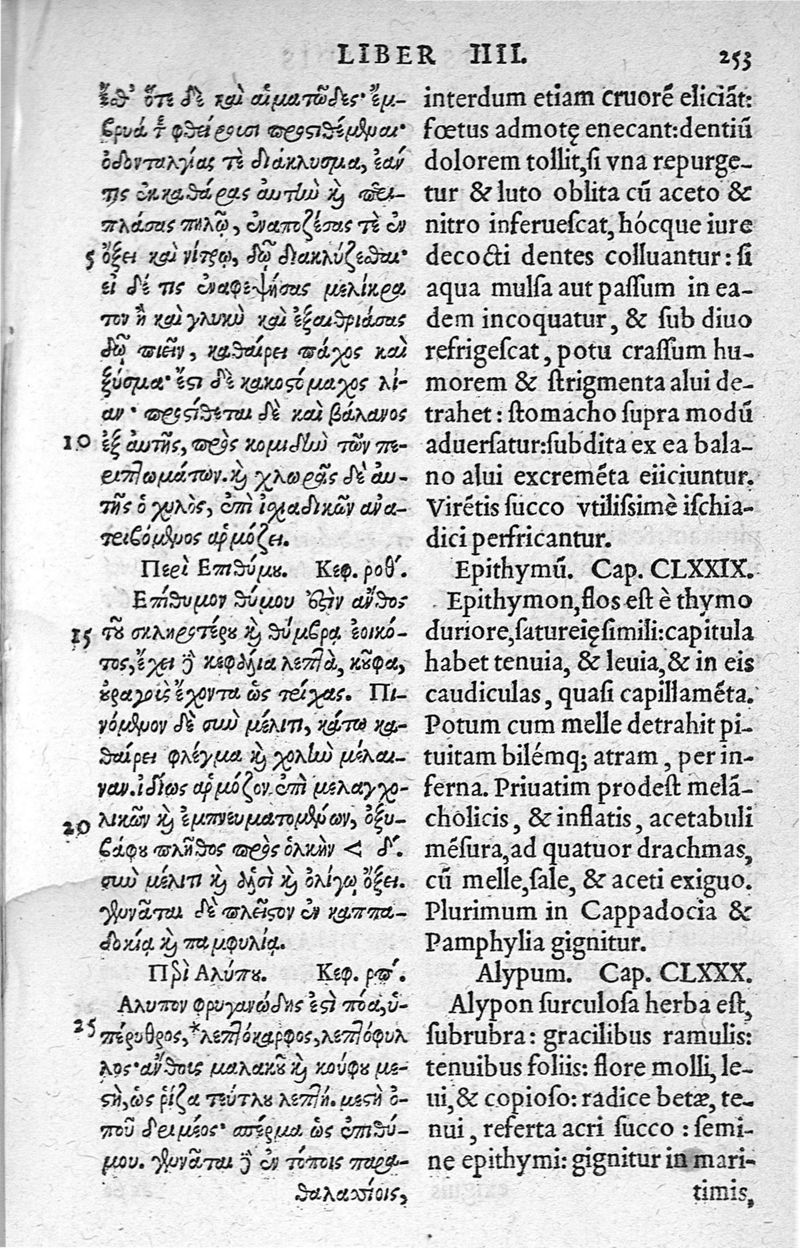 LIBER IIII. 253
ἔσθ' ὅτε δὲ καὶ αἱματῶδες· ἔμ-
βρυά τε φθείρουσι προςτιθέμεναι·
ὀδονταλγίας τὲ διάκλυσμα, ἐάν
τις ἐκκαθάρας αὐτὴν καὶ περι-
πλάσας πηλῷ, ἐναποζέσας τὲ ἐν
5 ὄξει καὶ νίτρῳ, δῷ διακλύζεσθαι·
εἰ δέ τις ἐναφεψήσας μελίκρα
τον ἢ καὶ γλυκὺ καὶ ἐξαιθριάσας
δῷ πιεῖν, καθαίρει πάχος καὶ
ξύσμα· ἔστι δὲ κακοστόμαχος λί-
αν· προςτίθεται δὲ καὶ βάλανος
10 ἐξ αὐτῆς, πρὸς κομιδὴν τῶν πε-
ριττωμάτων. καὶ χλωρᾶς δὲ αὐ-
τῆς ὁ χυλὸς, ἐπὶ ἰσχιαδικῶν ἀνα-
τριβόμενος ἁρμόζει.
Περὶ Επιθύμου. Κεφ. ροθ'.
Επίθυμον θύμου ἐστὶν ἄνθος
15 τοῦ σκληροτέρου καὶ θύμβρᾳ ἐοικό-
τος, ἔχει δὲ κεφάλια λεπτὰ, κοῦφα,
οὐραγοὺς ἔχοντα ὡς τρίχας. Πι-
νόμενον δὲ σὺν μέλιτι, κάτω κα-
θαίρει φλέγμα καὶ χολὴν μέλαι-
ναν. ἰδίως ἁρμόζον ἐπὶ μελαγχο-
λικῶν καὶ ἐμπνευματουμένων, ὀξυ-
20 βάφου πλῆθος πρὸς ὁλκὴν < δ'.
σὺν μέλιτι καὶ ἁλσὶ καὶ ὀλίγῳ ὄξει.
γεννᾶται δὲ πλεῖστον ἐν καππα-
δοκίᾳ καὶ παμφυλίᾳ.
Περὶ Αλύπου. Κεφ. ρπ'.
Αλυπον φρυγανώδης ἐστὶ πόα, ὑ-
25 πέρυθρος, *λεπτόκαρφος, λεπτόφυλ
λος· ἄνθους μαλακοῦ καὶ κούφου με-
στὴ, ὡς ῥίζα τεύτλου λεπτὴ. μεστὴ ὀ-
ποῦ δριμέος· σπέρμα ὡς ἐπιθύ-
μου. γεννᾶται δὲ ἐν τόποις παρα-
θαλασσίοις,
interdum etiam cruorẽ eliciãt:
fœtus admotę enecant: dentiũ
dolorem tollit, ſi vna repurge-
tur & luto oblita cũ aceto &
nitro inferueſcat, hócque iure
decocti dentes colluantur: ſi
aqua mulſa aut paſſum in ea-
dem incoquatur, & ſub diuo
refrigeſcat, potu craſſum hu-
morem & ſtrigmenta alui de-
trahet: ſtomacho ſupra modũ
aduerſatur: ſubdita ex ea bala-
no alui excremẽta eiiciuntur.
Virẽtis ſucco vtiliſsimè iſchia-
dici perfricantur.
Epithymũ. Cap. CLXXIX.
Epithymon, flos eſt è thymo
duriore, ſatureię ſimili: capitula
habet tenuia, & leuia, & in eis
caudiculas, quaſi capillamẽta.
Potum cum melle detrahit pi-
tuitam bilémq; atram, per in-
ferna. Priuatim prodeſt melã-
cholicis, & inflatis, acetabuli
mẽſura, ad quatuor drachmas,
cũ melle, ſale, & aceti exiguo.
Plurimum in Cappadocia &
Pamphylia gignitur.
Alypum. Cap. CLXXX.
Alypon ſurculoſa herba eſt,
ſubrubra: gracilibus ramulis:
tenuibus foliis: flore molli, le-
ui, & copioſo: radice betæ, te-
nui, referta acri ſucco: ſemi-
ne epithymi: gignitur in mari-
timis,